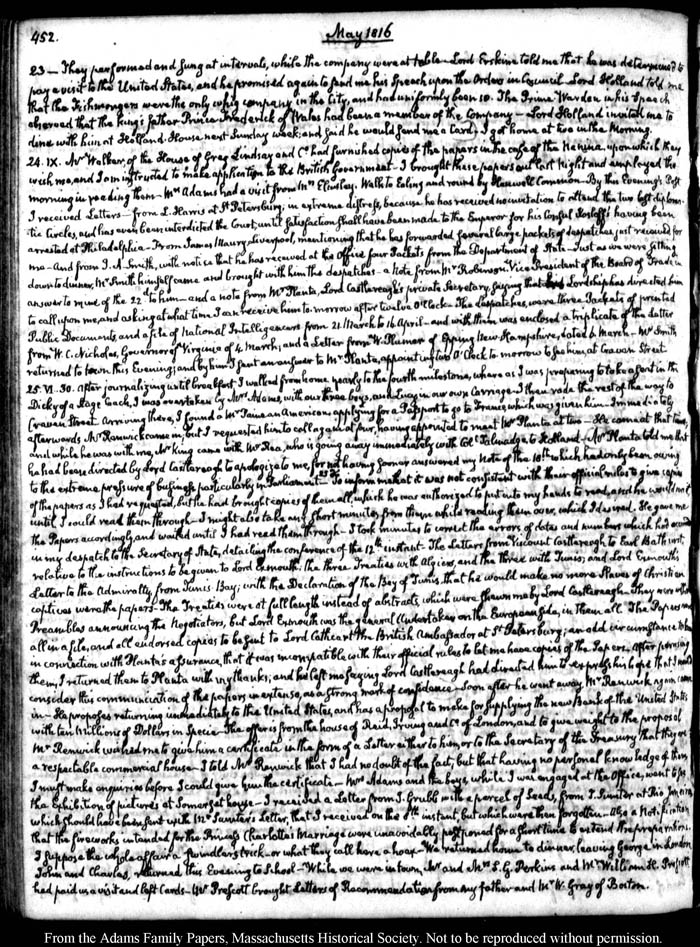 452.
May 1816
23 — They performed and sung at intervals, while the company were at table — Lord Erskine told me that he was determined to
pay a visit to the United States, and he promised again to send me his Speech upon the Orders in Council. Lord Holland told me
that the Fishmongers were the only whig company in the City, and had uniformly been so. The Prime Warden in his Speech
observed that the king's father Prince Frederick of Wales had been a member of the Company — Lord Holland invited me to
dine with him at Holland House next Sunday week; and said he would send me a Card. I got home at two in the Morning.
24. IX. Mr Walker, of the House of Greg Lindsay and Co. had furnished copies of the papers in the case of the Henrica, upon which they
wish me, and I am instructed to make application to the British Government — I brought these papers out last Night and employed the
morning in reading them — Mrs Adams had a visit from Mrs Elmsley. Walk to Ealing and round by Hanwell Common — By this Evening's Post
I received Letters — from L. Harris at St Petersburg; in extreme distress, because he has received no invitation to attend the two last diploma-
tic Circles, and has even been interdicted the Court, until satisfaction shall have been made to the Emperor for his Consul Kosloff's having been
arrested at Philadelphia — From James Maury, Liverpool, mentioning that he has forwarded several large packets of despatches just received for
me — And from J. A. Smith, with notice that he has received at the Office four Packets from the Department of State. Just as we were sitting
down to dinner, Mr Smith himself came and brought with him the despatches — a Note from Mr Robinson, Vice President of the Board of Trade in
answer to mine of the 22d to him — and a note from Mr Planta, Lord Castlereagh's private Secretary, saying that his Lordship has directed him
to call upon me, and asking at what time I can receive him to-morrow after twelve O'Clock. The despatches, were three Packets of printed
Public Documents, and a file of National Intelligencers from 21 March to 16 April — and with them was enclosed a triplicate of the letter
from W. C. Nicholas, Governor of Virginia of 4 March; and a Letter from W. Plumer of Epping New Hampshire, dated 6 March — Mr Smith
returned to town this Evening; and by him I sent an answer to Mr Planta, appointing two O'Clock to morrow to see him, at Craven Street
25. VI. 30. After journalizing until breakfast I walked from home nearly to the fourth milestone, where as I was preparing to take a seat in the
Dicky of a Stage Coach, I was overtaken by Mrs Adams, with our three boys, and Lucy in our own Carriage. I then rode the rest of the way to
Craven Street. Arriving there, I found a Mr Taina an American, applying for a Passport to go to France, which was given him — Immediately
afterwards Mr Renwick came in, but I requested him to call again at four, having appointed to meet Mr Planta at two — He came at that time;
and while he was with me, Mr King came with Mr Rea, who is going away immediately with Col. Talmadge to Holland — Mr Planta told me that
he had been directed by Lord Castlereagh to apologize to me, for not having sooner answered my Note of the 18th which had only been owing
to the extreme pressure of business particularly in Parliament — To inform me that it was not consistent with their official rules to give copies
of the papers as I had requested, but he had brought copies of them all, which he was authorized to put into my hands to read, and he would wait
until I could read them through — I might also take any short minutes from them while reading them over, which I desired. He gave me
the Papers accordingly and waited until I had read them through — I took minutes to correct the errors of dates and number which had occurred
in my despatch to the Secretary of State, detailing the conference of the 12th instant — The Letters from Viscount Castlereagh to Earl Bathurst,
relative to the instructions to be given to Lord Exmouth. The three Treaties with Algiers, and the three with Tunis; and Lord Exmouth's
Letter to the Admiralty, from Tunis Bay; with the Declaration of the Bey of Tunis, that he would make no more Slaves of Christian
captives were the papers — The Treaties were at full length instead of abstracts, which were shewn me by Lord Castlereagh — They were other
Preambles announcing the Negotiators, but Lord Exmouth was the general Undertaker on the European side, in them all. The Papers were
all in a file, and all endorsed copies to be sent to Lord Cathcart the British Ambassador at St Petersburg; an odd circumstance taken
in connection with Planta's assurance, that it was incompatible with their official rules to let me have copies of the Papers. After perusing
them, I returned them to Planta with my thanks; and he left me saying Lord Castlereagh had directed him to express his hope that I would
consider this communication of the papers in extenso, as a strong mark of confidence — Soon after he went away, Mr Renwick again came
in — He proposes returning immediately to the United States, and has a proposal to make for supplying the new Bank of the United States
with ten Millions of Dollars in Specie — The offer is from the house of Reid, Irving and Co. of London, and to give weight to the proposal
Mr Renwick wished me to give him a certificate in the form of a Letter either to him, or to the Secretary of the Treasury that they are
a respectable commercial house — I told Mr Renwick that I had no doubt of the fact, but that having no personal knowledge of them
I must make enquiries before I could give him the certificate — Mrs Adams and the boys, while I was engaged at the Office, went to see
the Exhibition of pictures at Somerset house — I received a Letter from J. Grubb with a parcel of Seeds, from T. Sumter at Rio Janeiro,
which should have been sent with Mr Sumter's Letter, that I received on the 8th instant, but which were then forgotten. Also a Notification
that the fireworks intended for the Princess Charlotte's Marriage were unavoidably postponed for a short time to extend the preparations
I suppose the whole affair a swindler's trick — or what they call here a hoax — We returned home to dinner, leaving George in London
John and Charles, returned this Evening to School — While we were in town, Mr and Mrs S. G. Perkins and Mr William H. Prescott
had paid us a visit and left Cards — Mr Prescott brought Letters of Recommendation from my father and Mr W. Gray of Boston.
From the Adams Family Papers, Massachusetts Historical Society. Not to be reproduced without permission.